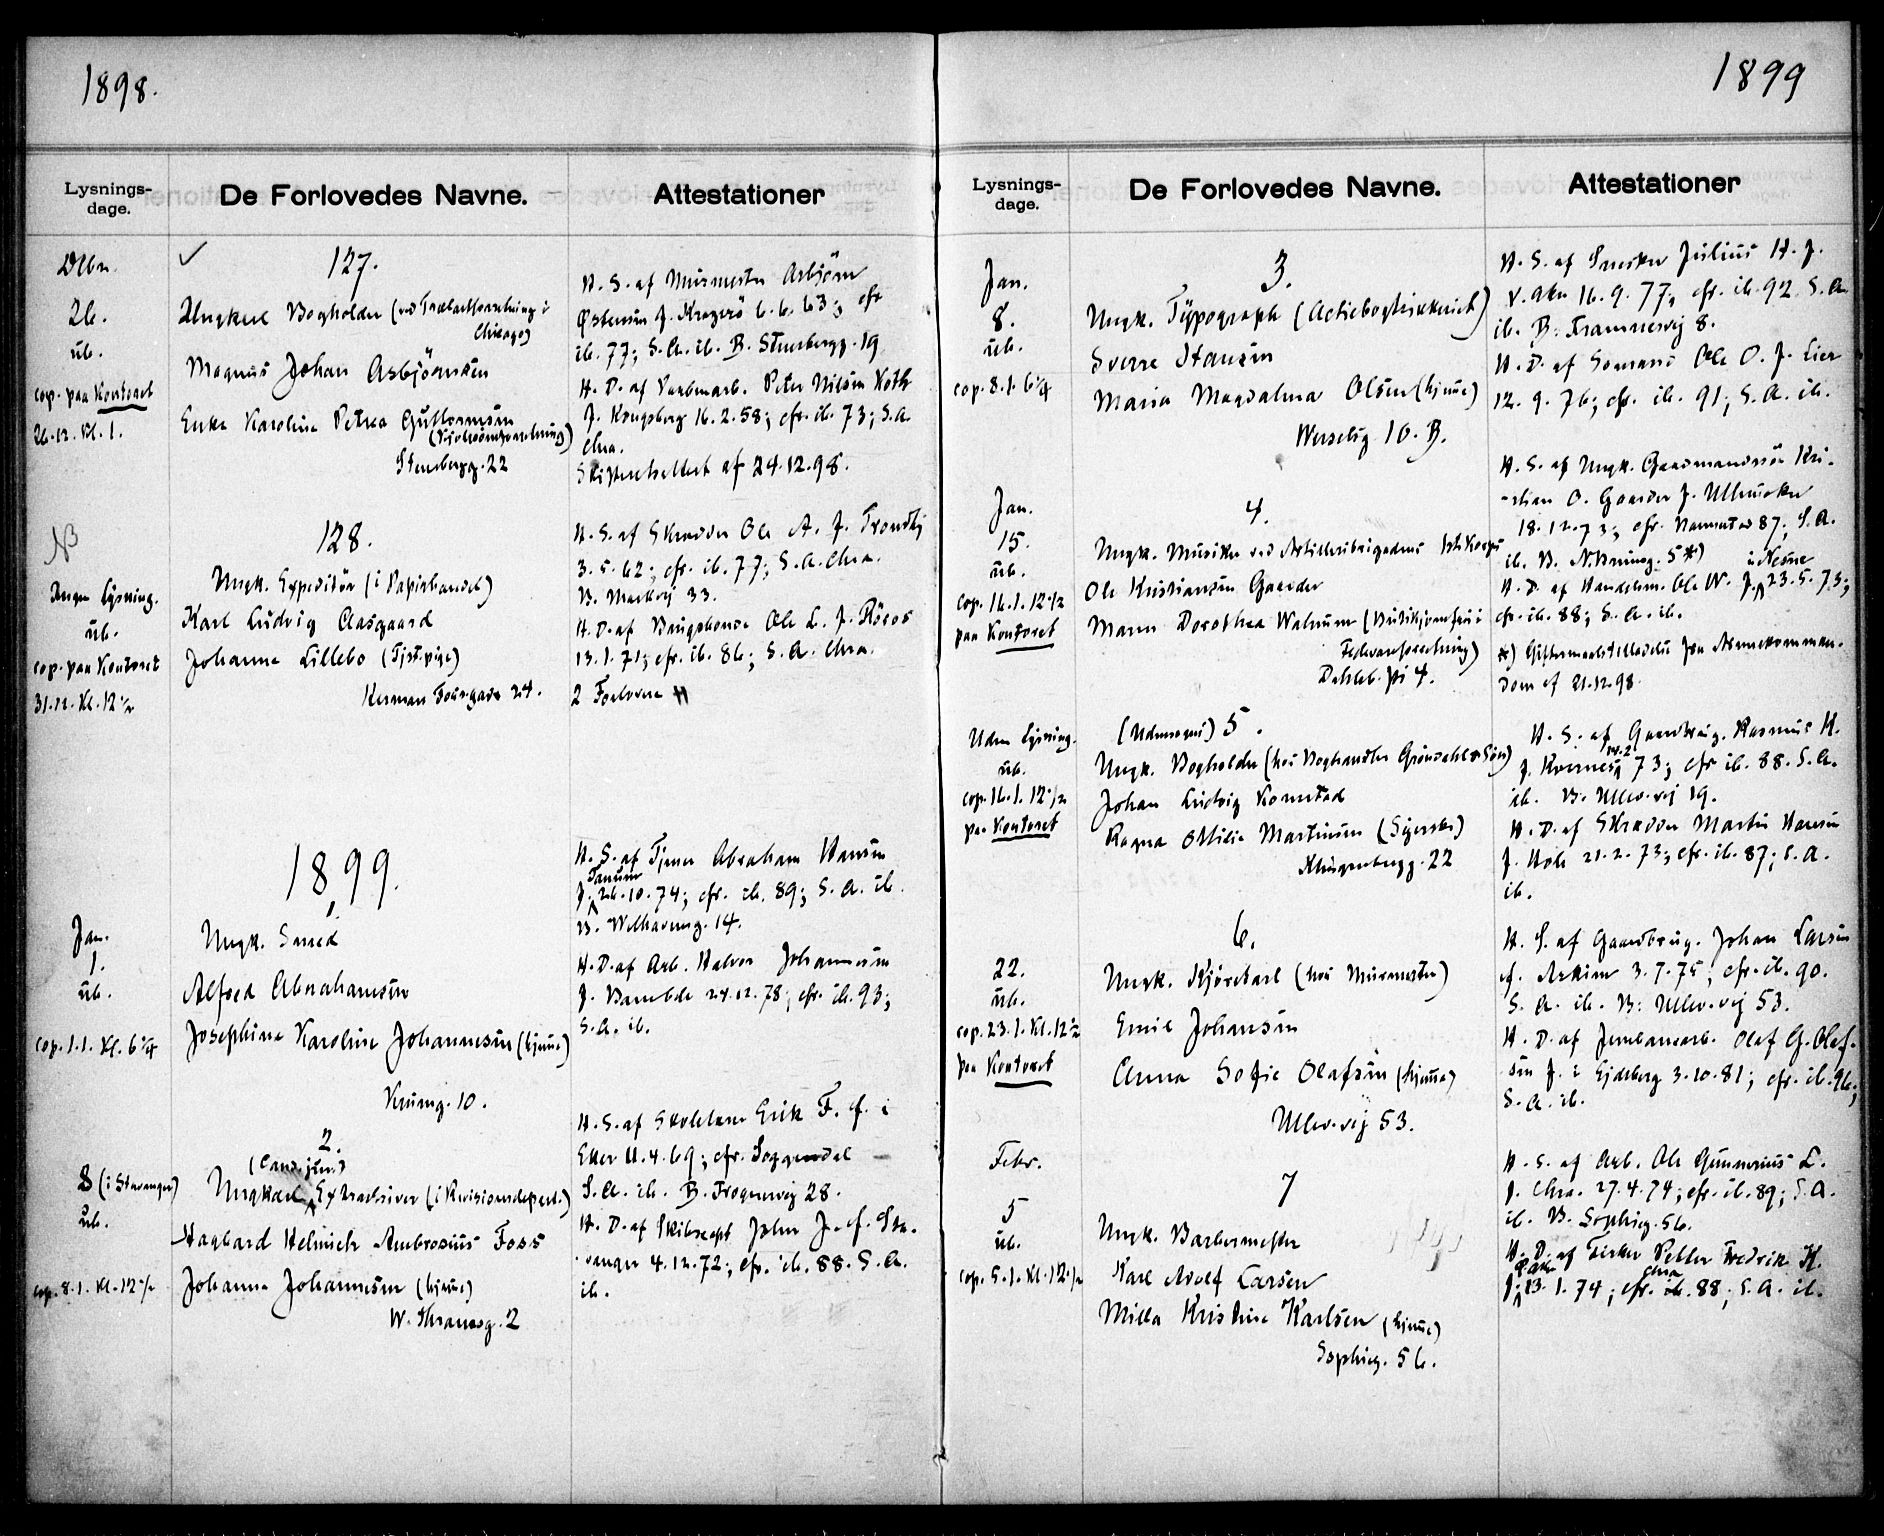 1898.
Lysnings-
dage.
De Forlovedes Navne.
Attestationer
Dcbr.
26.
üb.
cop. paa Kontoret
26.12. Kl. 1.
127.
Ungkarl Bogholder (ved
Chicago)
Magnus Johan Asbjörnsen
Enke Karoline Petrea Guttormsen
Stensbergg. 22
H. S. af Murmester Asbjörn
Östensen f. Kragerö 6.6.63; cfr
ib. 77; S.A. ib. B. Stensbergg. 19
H. D. af Peter Nilsen Koth
f. Kongsberg 16.2.58; cfr. ib. 73; S.A.
Chra.
Skifteretsattest af 24.12.98.
NB
Ingen Lysning.
üb.
cop. paa Kontoret
31.12. Kl. 12½
128.
Ungk. Expeditör (i Papirhandel)
Karl Ludvig Aasgaard
Johanne Lillebo (Tjst.pige)
Herman Fossgade 24.
H. S. af Skrædder Ole A. f. Trondhj
3.5.62; cfr. ib. 77; S.A. Chra.
B. Markvej 33.
H. D. af Ole L. f. Röros
13.1.71; cfr. ib. 86; S.A. Chra.
2 Forlovere
1899.
Jan.
1.
üb.
cop. 1.1. Kl. 6¼
1.
Ungk. Smed
Alfred Abrahamsen
Josephine Karoline Johannesen (hjemme)
Krumg. 10.
H. S. af Tjener Abraham Hansen
f. Tanum 26.10.74; cfr. ib. 89; S.A. ib.
B. Welhavensg. 14.
H. D. af Arb. Halvor Johannesen
f. Bamble 24.12.78; cfr. ib. 93;
S.A. ib.
8 (i Stavanger)
üb.
cop. 8.1. Kl. 12½
2.
(Cand. jur.)
Ungkarl Extraskriver (i Revisionsdepart.)
Hagbard Helmich Ambrosius Foss
Johanne Johannesen (hjemme)
W. Thranesg. 2
H. S. af Skolelærer Erik F. f. i
Eker 11.4.69; cfr. Soggendal
S.A. ib. B. Frognervej 28.
H. D. af John J. f. Sta-
vanger 4.12.72; cfr. ib. 88. S.A.
ib.
1899
Lysnings-
dage.
De Forlovedes Navne.
Attestationer
Jan.
8.
üb.
cop. 8.1. 6¼
3.
Ungk. Typograph (Actiebogtrykkeriet)
Sverre Hansen
Maria Magdalena Olsen (hjemme)
10. B.
H. S. af Snedker Julius H. f.
V. Aker 16.9.77; cfr. ib. 92. S.A.
ib. B. Framnesvej 8.
H. D. af Sömand Ole O. f. Lier
12.9.76; cfr. ib. 91; S.A. ib.
Jan.
15.
üb.
cop. 16.1. 12½
paa Kontoret
4.
Ungk. Musiker ved Artilleribrigadens 1ste Korps
Ole Kristiansen Gaarder
Maren Dorothea Walnum (Butikjomfru i
Dahlsb. sti 4.
H. S. af Ungk. Gaardmandssön Kri-
-stian O. Gaarder f. Ullensaker
18.12.73; cfr. Nannestad 87; S.A.
ib. B. 5 *)
i Nesne
H. D. af Handelsm. Ole W. f. 23.5.73;
cfr. ib. 88; S.A. ib.
*) Giftermaalstilladelse fra
dom af 21.12.98.
Uden Lysning.
üb.
cop. 16.1. 12½
paa Kontoret
5.
Ungk. Bogholder (hos Boghandler Gröndahl & Sön)
Johan Ludvig Komstad
Ragna Ottilie Martinsen (Syerske)
Klingenbergg. 22
H. S. af Gaardbrug. Rasmus K.
f. Kvernes 73; cfr ib. 88. S.A.
ib. B. Ullev.vej 19.
H. D. af Skrædder Martin Hansen
f. Hole 21.2.73; cfr. ib. 87; S.A.
ib.
22.
üb.
cop. 23.1. Kl. 12½
paa Kontoret
6.
Ungk. Kjörekarl (hos Murmester)
Emil Johansen
Anna Sofie Olafsen (hjemme)
Ullev.vej 53.
H. S. af Gaardbrug. Johan Larsen
f. Askim 3.7.75; cfr. ib. 90.
S.A. ib. B. Ullev.vej 53.
H. D. af Jernbanearb. Olaf G. Olaf-
sen f. i Ejdsberg 3.10.81; cfr. ib. 96;
S.A. ib.
Febr.
5
üb.
cop. 5.1. Kl. 12½
7
Ungk. Barbermester
Karl Adolf Larsen
Milla Kristine Karlsen (hjemme)
Sophieg. 56.
H. S. af Arb. Ole Gunnerius L.
f. Chra. 27.4.74; cfr. ib. 89; S.A.
ib. B. Sophieg. 56.
H. D. af Petter Fredrik K.
f. 13.1.74; cfr. Chra 88; S.A. ib.